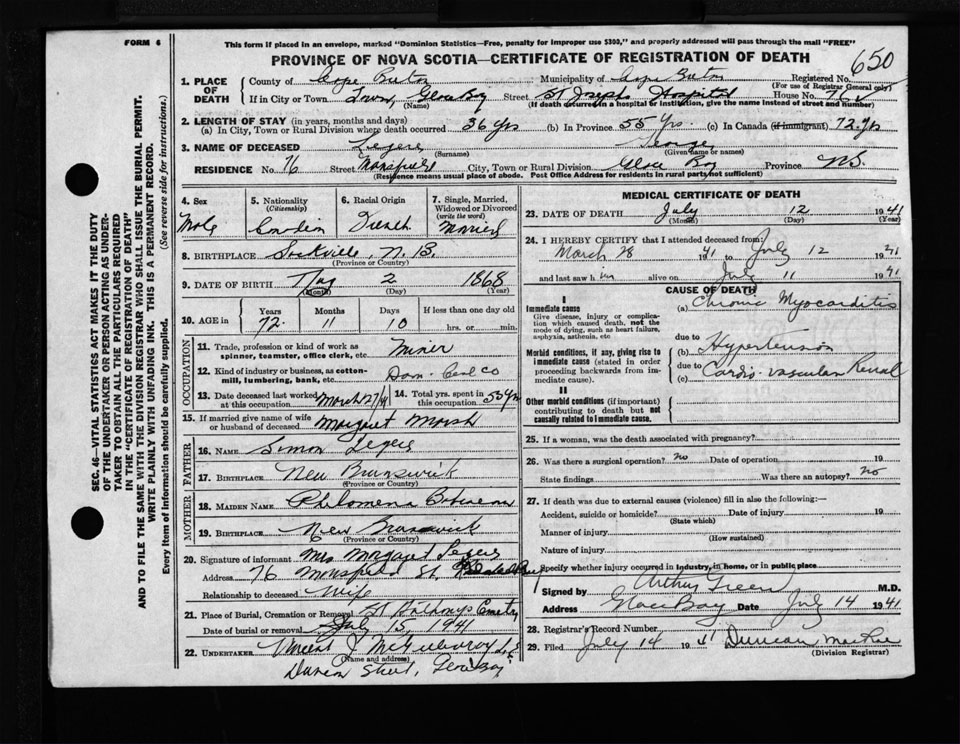 FORM 6
This form if placed in an envelope, marked "Dominion Statistics—Free, penalty for improper use $300," and properly addressed will pass through the mail "FREE"
PROVINCE OF NOVA SCOTIA—CERTIFICATE OF REGISTRATION OF DEATH
650
1. PLACE OF DEATH
County of Cape Breton Municipality of Cape Breton Registered No.
(For use of Registrar General only)
If in City or Town Town, Glace Bay Street St Josephs Hospital House No.
(Name) (If death occurred in a hospital or institution, give the name instead of street and number)
2. LENGTH OF STAY (in years, months and days)
(a) In City, Town or Rural Division where death occurred 36 Yrs (b) In Province 55 Yrs. (c) In Canada (if immigrant) 72 Yrs
3. NAME OF DECEASED Legere George
(Surname) (Given name or names)
RESIDENCE No. 76 Street Mansfield City, Town or Rural Division Glace Bay Province N.S.
(Residence means usual place of abode. Post Office Address for residents in rural parts not sufficient)
4. Sex Male
5. Nationality (Citizenship) Canadian
6. Racial Origin French
7. Single, Married, Widowed or Divorced (write the word) Married
8. BIRTHPLACE Sackville, N.B.
(Province or Country)
9. DATE OF BIRTH 2 1868
(Month) (Day) (Year)
10. AGE in Years Months Days If less than one day old
72 11 10 hrs. or min.
OCCUPATION
11. Trade, profession or kind of work as spinner, teamster, office clerk, etc. Miner
12. Kind of industry or business, as cotton-mill, lumbering, bank, etc. Dom. Coal Co
13. Date deceased last worked at this occupation March 27/41 14. Total yrs. spent in this occupation 55 Yrs
15. If married give name of wife or husband of deceased Margaret Marsh
FATHER
16. NAME Simon Legere
17. BIRTHPLACE New Brunswick
(Province or Country)
MOTHER
18. MAIDEN NAME Philomena
19. BIRTHPLACE New Brunswick
(Province or Country)
20. Signature of informant Mrs Margaret Legere
Address 76 Mansfield St.
Relationship to deceased Wife
21. Place of Burial, Cremation or Removal St Anthonys Cemetry
Date of burial or removal July 15, 1941
22. UNDERTAKER Vincent J McGillivray
(Name and address)
Street, Glace Bay
MEDICAL CERTIFICATE OF DEATH
23. DATE OF DEATH July 12 1941
(Month) (Day) (Year)
24. I HEREBY CERTIFY that I attended deceased from:
March 28 1941 to July 12 1941
and last saw h im alive on July 11 1941
CAUSE OF DEATH
I
Immediate cause
Give disease, injury or complication which caused death, not the mode of dying, such as heart failure, asphyxia, asthenia, etc
(a) Chronic Myocarditis
due to
Morbid conditions, if any, giving rise to immediate cause (stated in order proceeding backwards from immediate cause).
(b) Hypertension
due to
(c) Cardio-vascular Renal
II
Other morbid conditions (if important) contributing to death but not causally related to immediate cause.
25. If a woman, was the death associated with pregnancy?
26. Was there a surgical operation? No Date of operation 19
State findings Was there an autopsy? No
27. If death was due to external causes (violence) fill in also the following:—
Accident, suicide or homicide? Date of injury 19
(State which)
Manner of injury
(How sustained)
Nature of injury
Specify whether injury occurred in industry, in home, or in public place
Signed by Arthur Green M.D.
Address Glace Bay Date July 14 1941
28. Registrar's Record Number
29. Filed July 14 1941 Duncan MacRae
(Division Registrar)
SEC. 46—VITAL STATISTICS ACT MAKES IT THE DUTY
OF THE UNDERTAKER OR PERSON ACTING AS UNDER-
TAKER TO OBTAIN ALL THE PARTICULARS REQUIRED
IN THE "CERTIFICATE OF REGISTRATION OF DEATH"
AND TO FILE THE SAME WITH THE DIVISION REGISTRAR WHO SHALL ISSUE THE BURIAL PERMIT.
WRITE PLAINLY WITH UNFADING INK. THIS IS A PERMANENT RECORD.
Every item of information should be carefully supplied. (See reverse side for instructions).